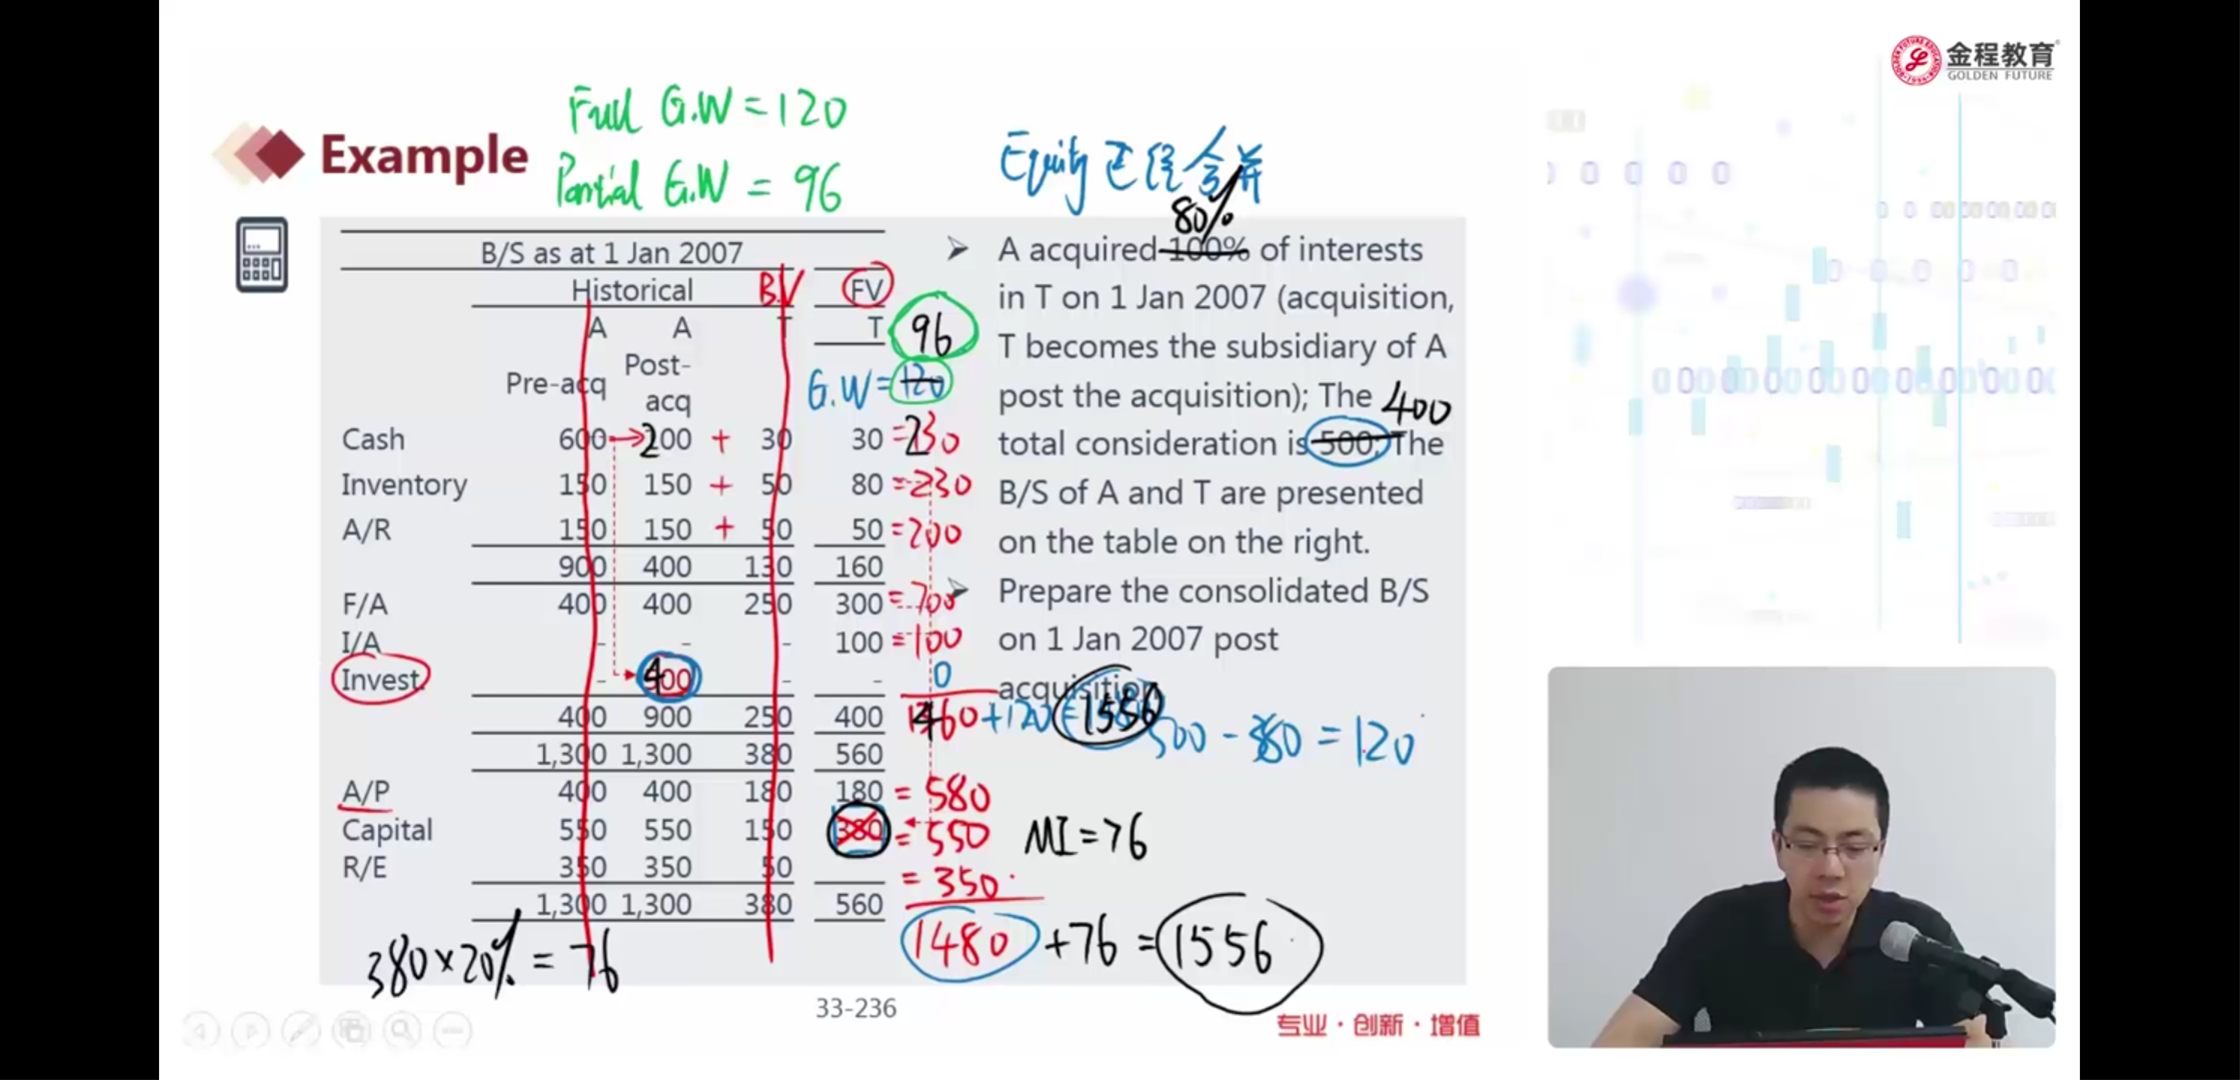 金程教育
GOLDEN FUTURE
Full G.W = 120
Partial G.W = 96
Example
Equity 正经合并
80%
B/S as at 1 Jan 2007
Historical B.V FV
A A T T 96
Pre-acq Post-acq G.W = 120
Cash 600 → 200 + 30 30 = 230
Inventory 150 150 + 50 80 = 230
A/R 150 150 + 50 50 = 200
900 400 130 160
F/A 400 400 250 300 = 700
I/A - - - 100 = 100
Invest. - 400 - - 0
400 900 250 400 1460 + 120 = 1556
1,300 1,300 380 560
A/P 400 400 180 180 = 580
Capital 550 550 150 380 = 550 MI = 76
R/E 350 350 50 = 350
1,300 1,300 380 560 1480 + 76 = 1556
380 × 20% = 76
A acquired 100% of interests
in T on 1 Jan 2007 (acquisition,
T becomes the subsidiary of A
post the acquisition); The 400
total consideration is 500; The
B/S of A and T are presented
on the table on the right.
Prepare the consolidated B/S
on 1 Jan 2007 post
acquisition
500 - 380 = 120
33-236
专业·创新·增值